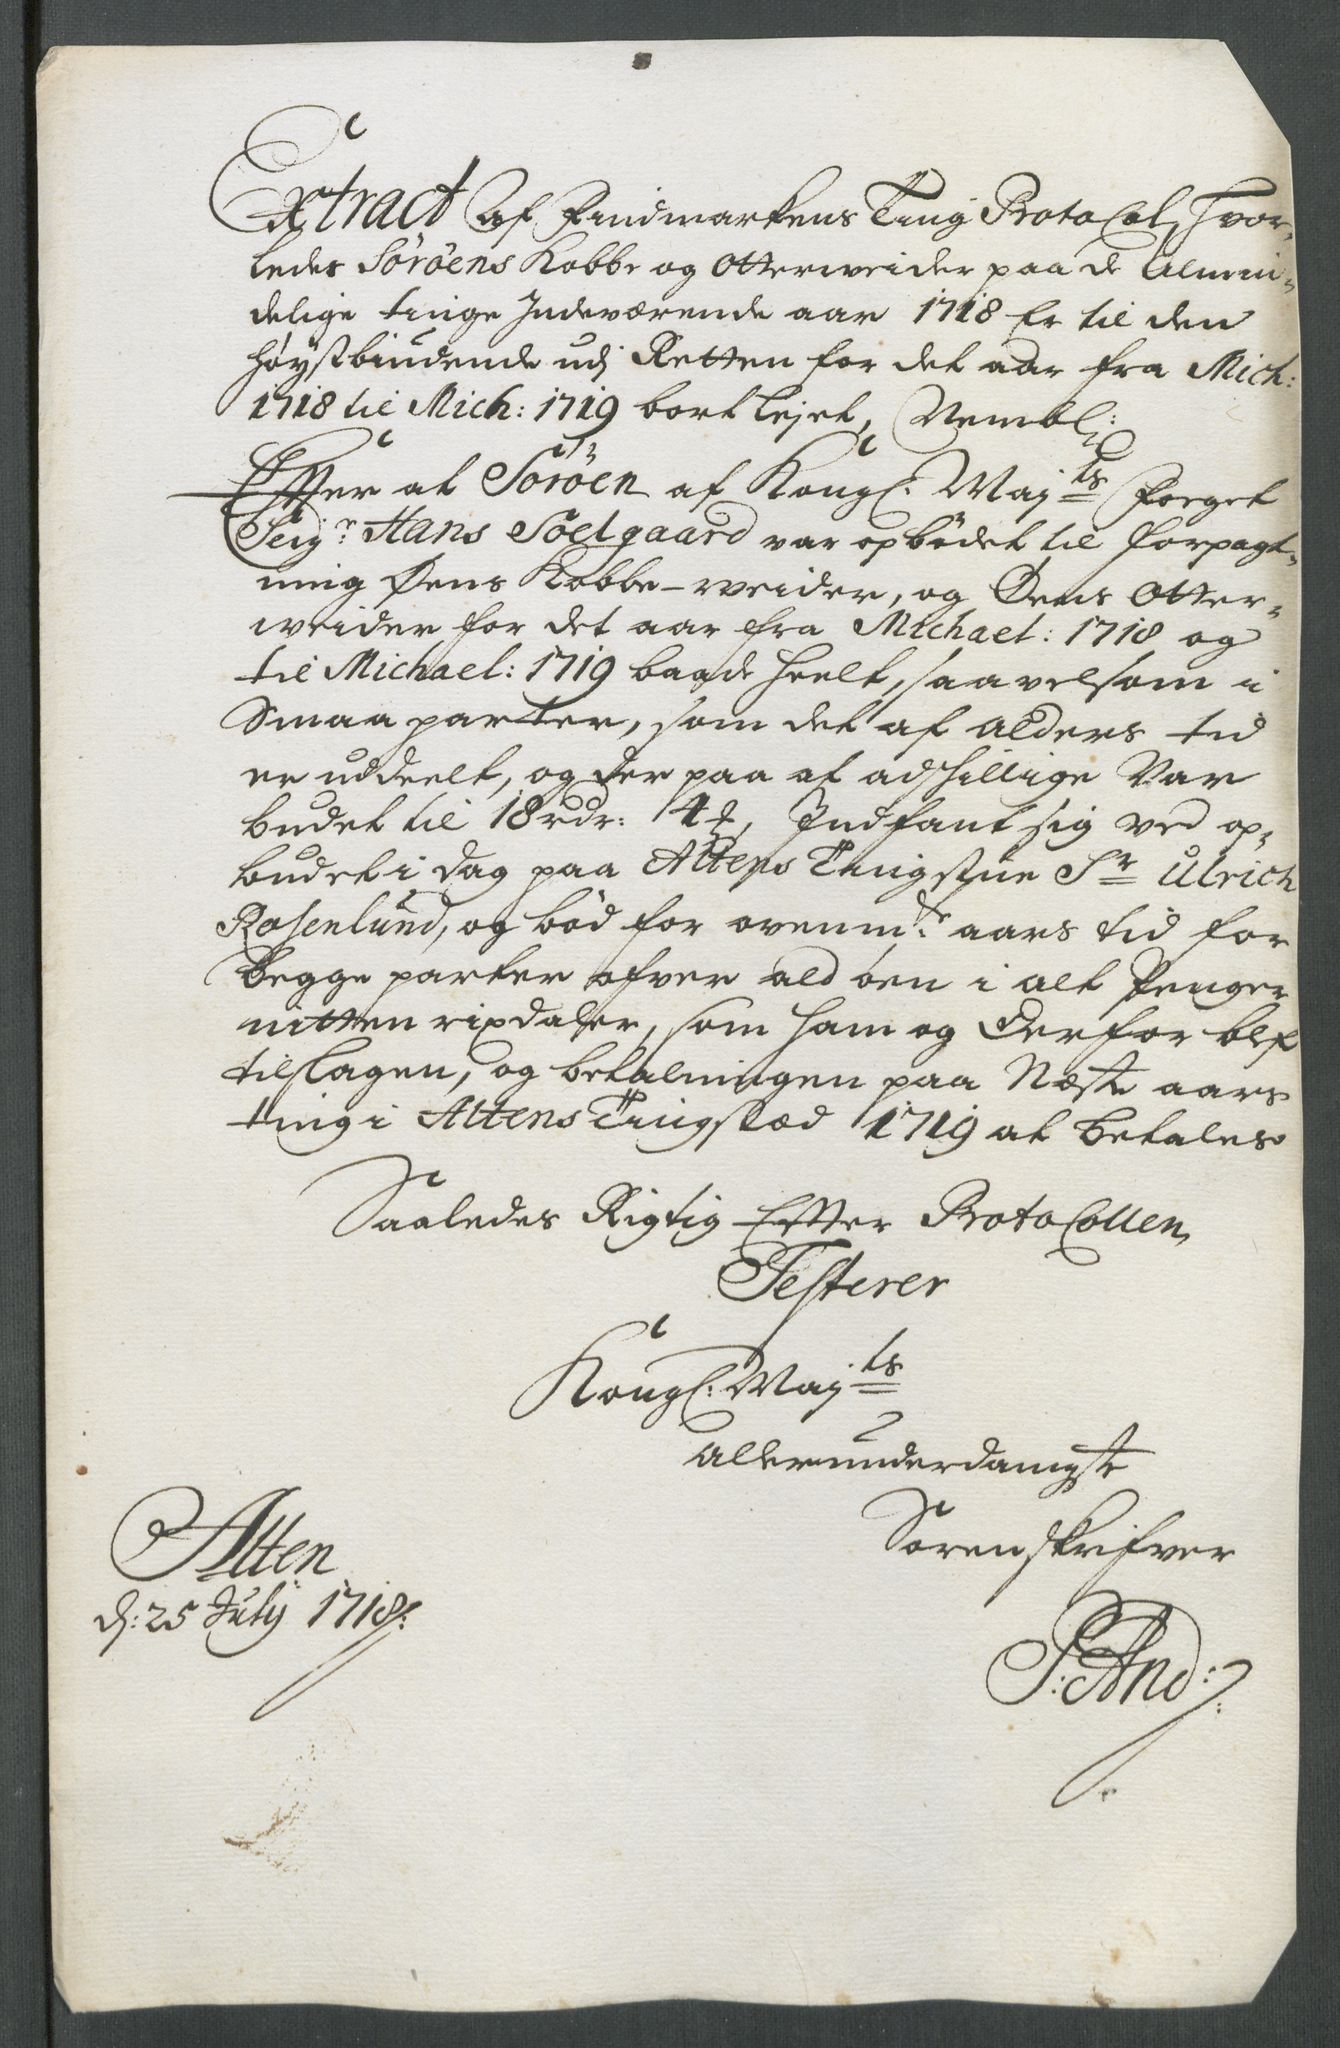 Extract af Findmarkens Ting Protocol, hvor-
ledes Söröens Kobbe og Otterveider paa de Almin-
delige tinge Indeværende aar 1718 Er til den
høystbiudende udj Retten for det aar fra Mich:
1718 til Mich: 1719 bort lejet, Nembl:
Efter at Söröen af Kongl. Maj:ts Foeget
Seig:r Hans Söelgaard var opbødet til forpagt-
ning Øens Kobbe-weider, og Øens Otter-
weider for det aar fra Michael: 1718 og
til Michael: 1719 baade heelt, saavelsom i
Smaa parter, som det af alders tid
er uddeelt, og der paa af adskillige Var
budet til 18 rdr: 4 , Indfant sig ved op-
budet i dag paa Altens Tingstue Sr Ulrich
Rosenlund, og bød for ovenm:te aars tid for
begge parter ofver ald öen i alt Penger
nitten rixdaler, som ham og Derfor blef
tilslagen, og betalningen paa Næste aars
ting i Altens Tingstæd 1719 at betales
Saaledes Rigtig Efter Protocollen,
Testerer
Kongl. Maj:ts
allerunderdanigste
Sorenskrifver
Alten
d: 25 Julij 1718:
P: And: